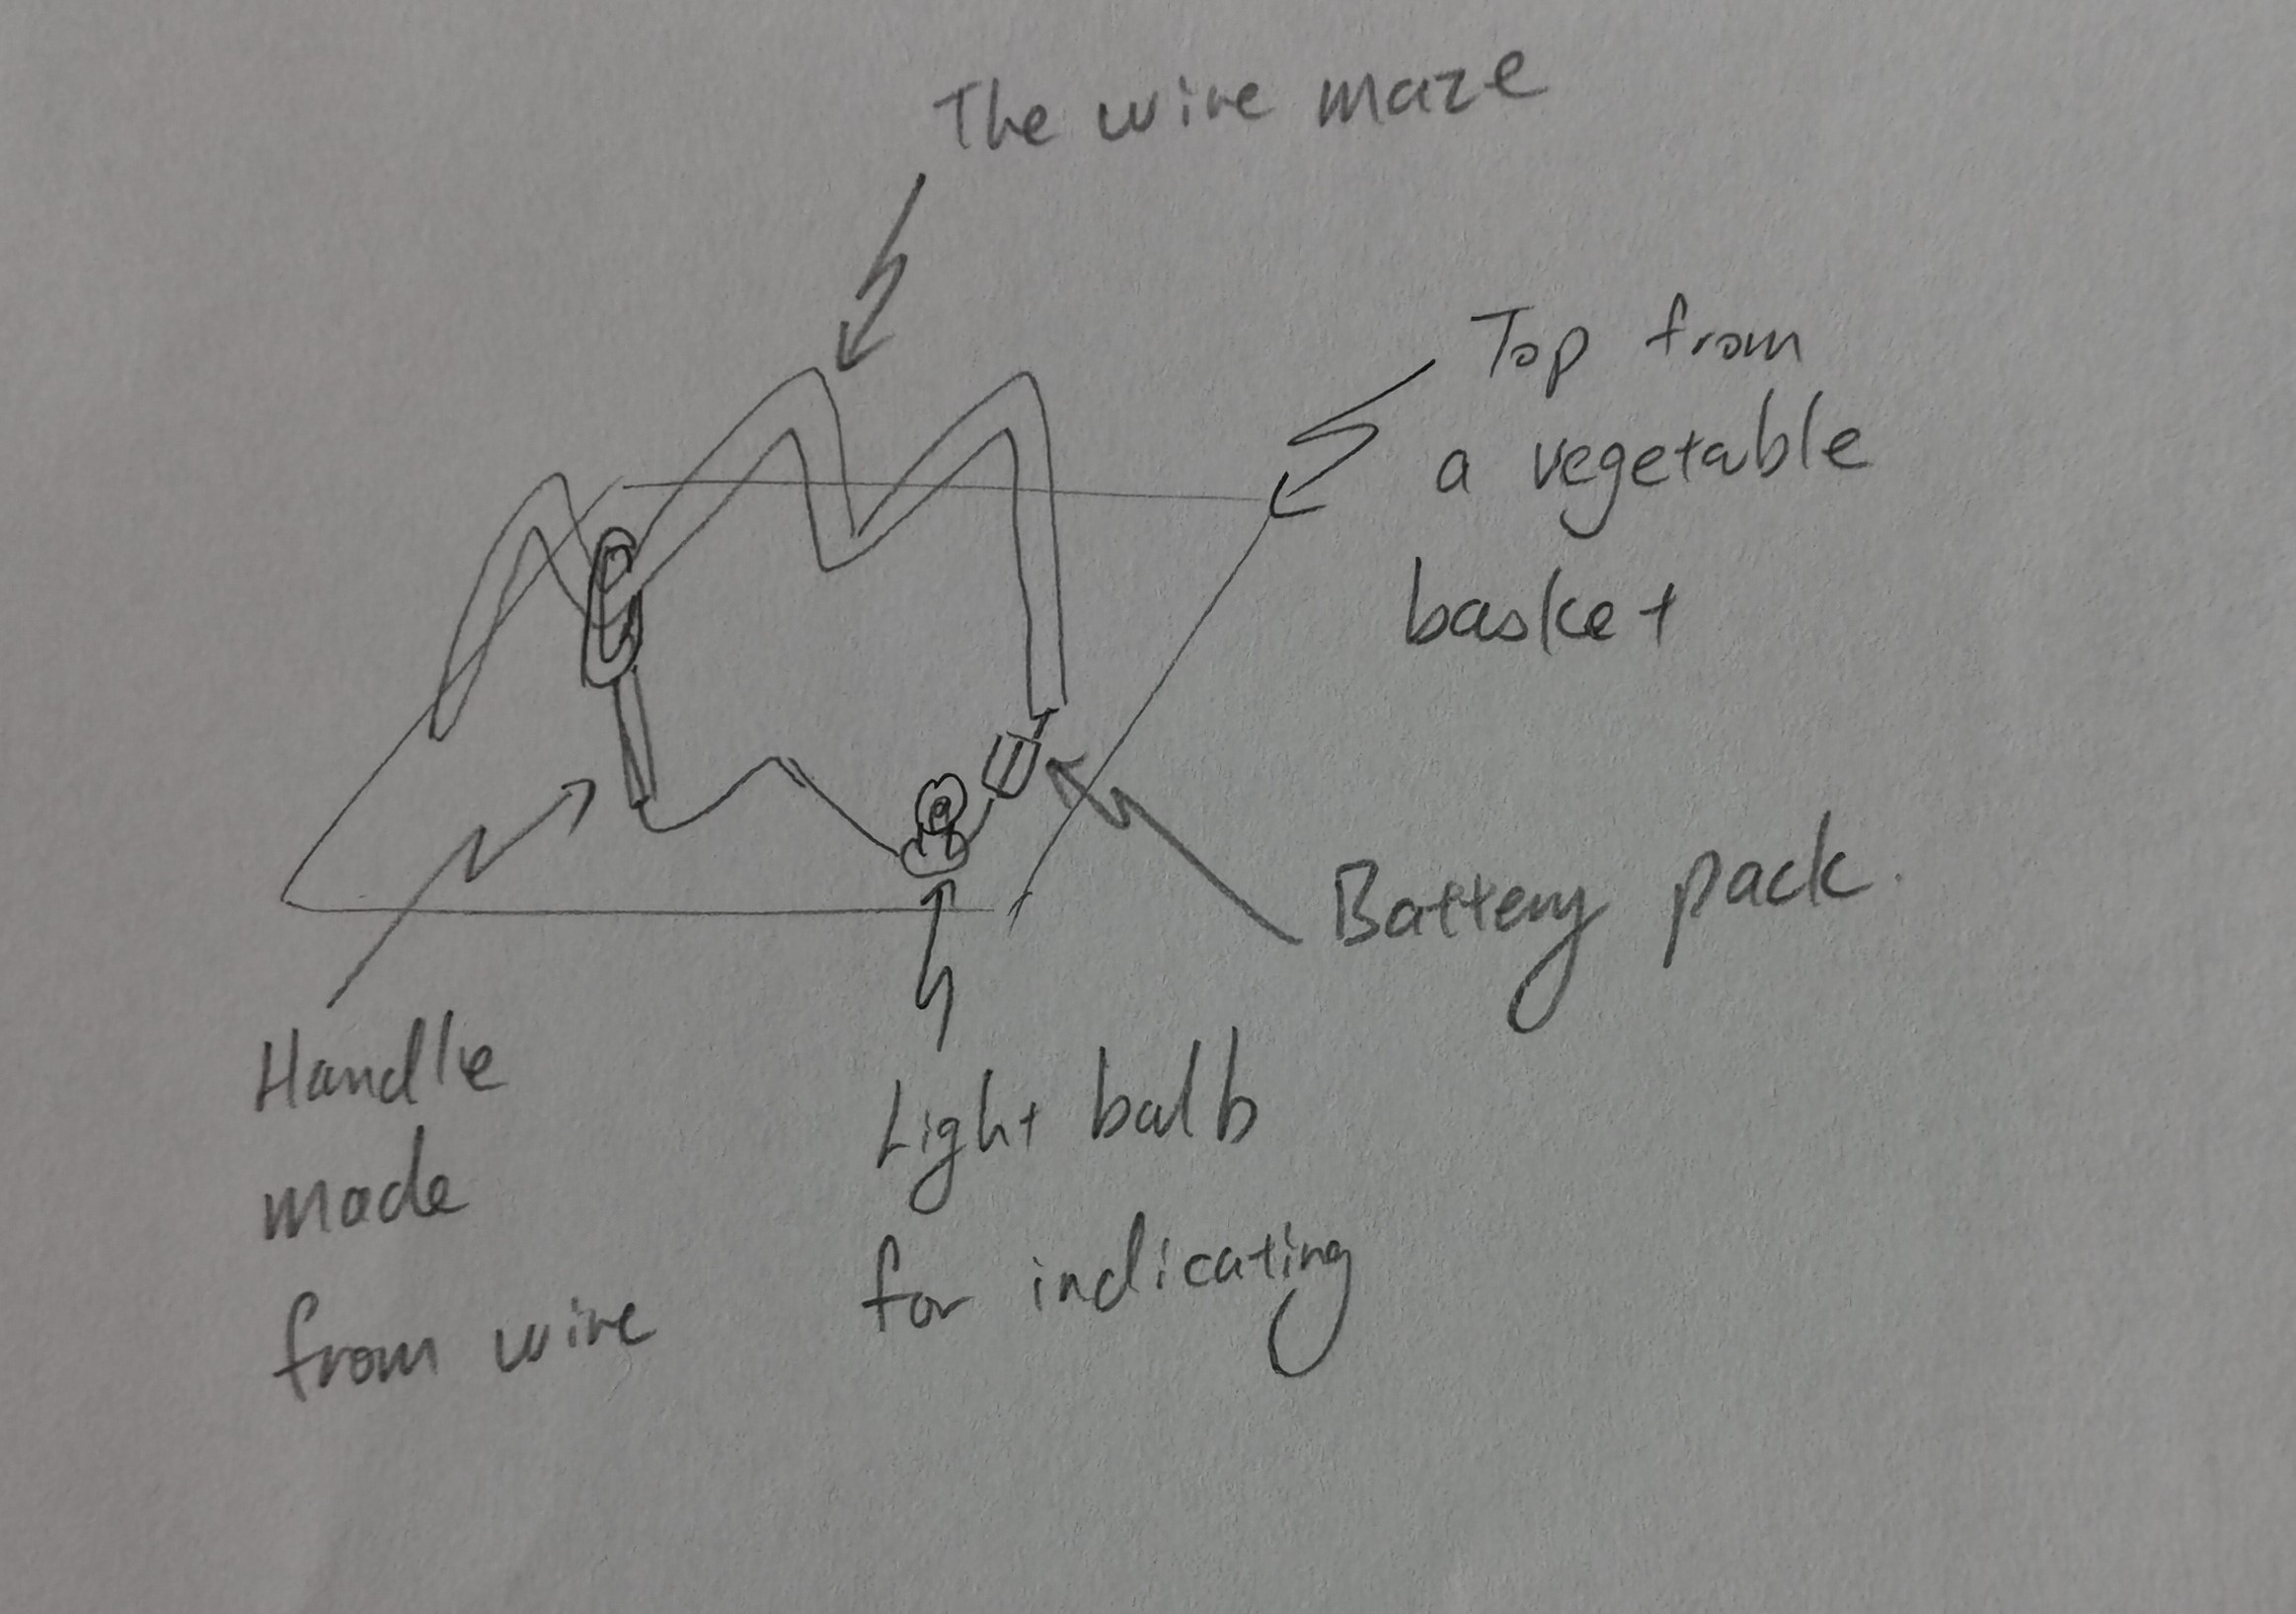 The wire maze
Top from
a vegetable
basket
Battery pack.
Handle
made
from wire
Light bulb
for indicating